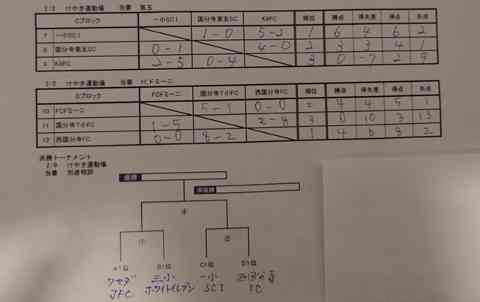 2/2 けやき運動場 当番 第五
Cブロック 一小SC1 国分寺東五SC KMFC 順位 勝点 得失差 得点 失点
7 一小SC1 1-0 5-2 1 6 4 6 2
8 国分寺東五SC 0-1 4-0 2 3 3 4 1
9 KMFC 2-5 0-4 3 0 -7 2 9
当番 FCFミーニ
Dブロック FCFミーニ 国分寺てのFC 西国分寺FC 順位 勝点 得失差 得点 失点
10 FCFミーニ 5-1 0-0 2 4 4 5 1
11 国分寺てのFC 1-5 2-8 3 0 10 3 13
12 西国分寺FC 0-0 8-2 1 4 6 8 2
決勝トーナメント
2/9 けやき運動場
当番
優勝
準優勝
③
① ②
A1位 B1位 C1位 D1位
ワセダ 三小 一小
JFC ホワイトイレブン SC1 FC